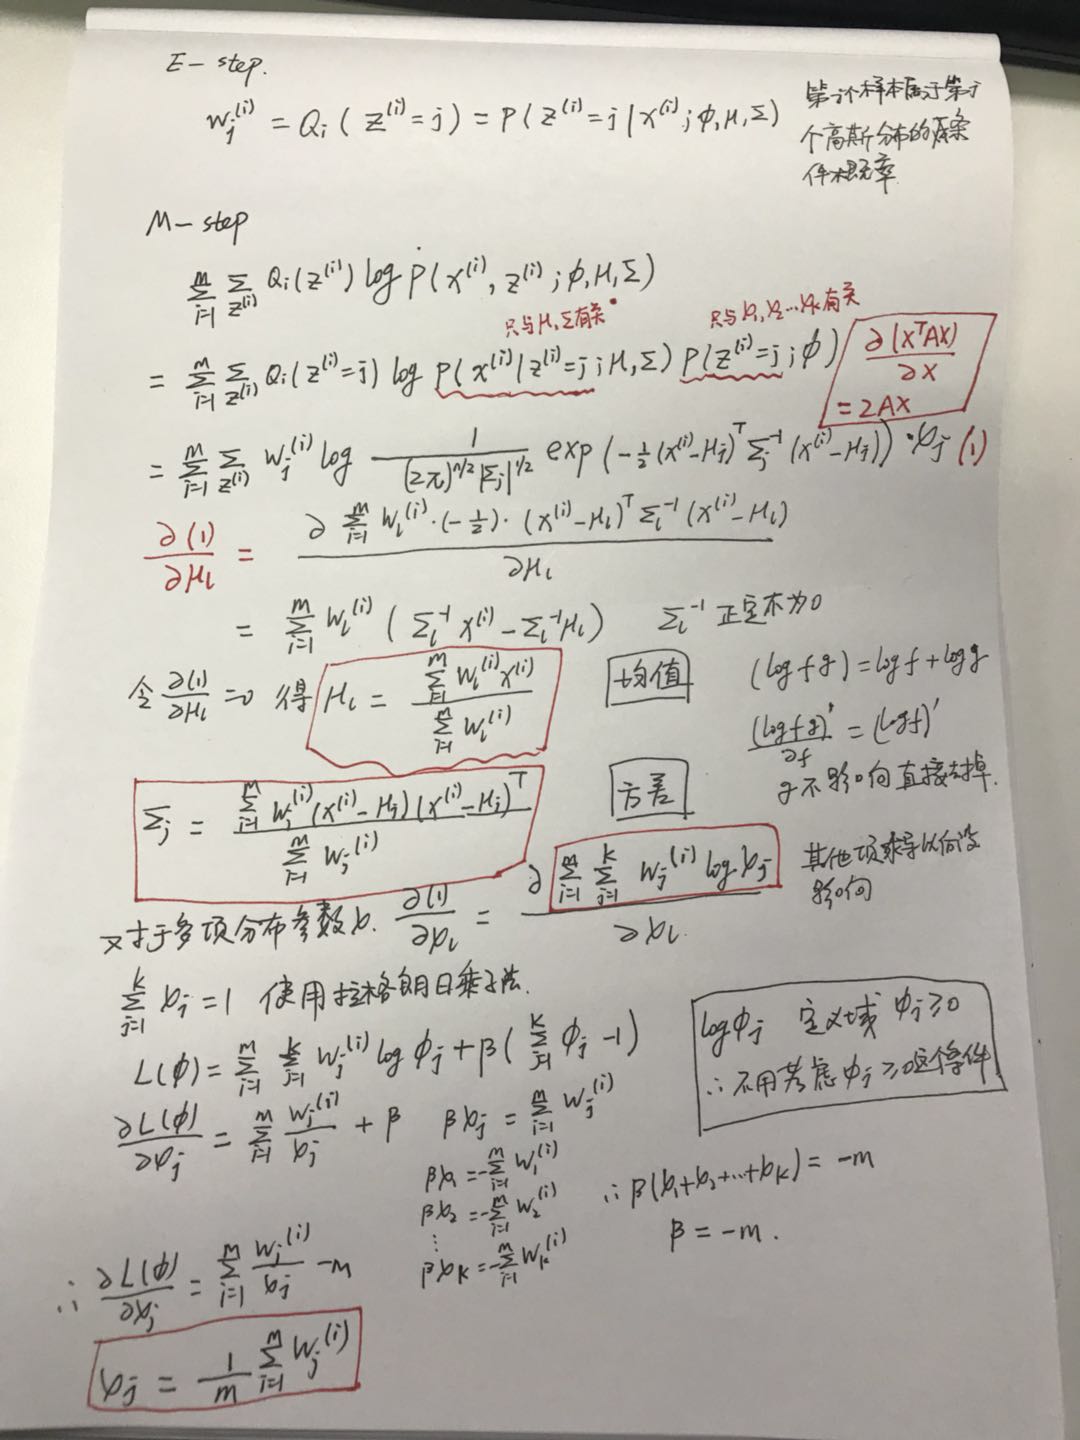 E-step.
w_j^{(i)} = Q_i ( z^{(i)}=j ) = P( z^{(i)}=j | x^{(i)} ; φ, μ, Σ )
第i个样本属于第j
个高斯分布的条
件概率
M-step
\sum_{i=1}^{m} \sum_{z^{(i)}} Q_i(z^{(i)}) log P( x^{(i)}, z^{(i)} ; φ, μ, Σ )
只与μ, Σ有关
只与φ_1, φ_2 … φ_k 有关
= \sum_{i=1}^{m} \sum_{z^{(i)}} Q_i(z^{(i)}=j) log P( x^{(i)} | z^{(i)}=j ; μ, Σ ) P( z^{(i)}=j ; φ )
\frac{∂(X^T A X)}{∂X}
= 2AX
= \sum_{i=1}^{m} \sum_{z^{(i)}} w_j^{(i)} log \frac{1}{(2π)^{n/2} |Σ_j|^{1/2}} exp( -\frac{1}{2} (x^{(i)}-μ_j)^T Σ_j^{-1} (x^{(i)}-μ_j) ) · φ_j (1)
\frac{∂(1)}{∂μ_l} = \frac{∂ \sum_{i=1}^{m} w_l^{(i)} · (-\frac{1}{2}) · (x^{(i)}-μ_l)^T Σ_l^{-1} (x^{(i)}-μ_l)}{∂μ_l}
= \sum_{i=1}^{m} w_l^{(i)} ( Σ_l^{-1} x^{(i)} - Σ_l^{-1} μ_l ) Σ_l^{-1} 正定不为0
令 \frac{∂(1)}{∂μ_l} = 0 得 μ_l = \frac{\sum_{i=1}^{m} w_l^{(i)} x^{(i)}}{\sum_{i=1}^{m} w_l^{(i)}}
均值
(log fg) = log f + log g
\frac{(log fg)'}{∂f} = (log f)'
g不影响直接去掉.
Σ_j = \frac{\sum_{i=1}^{m} w_j^{(i)} (x^{(i)}-μ_j)(x^{(i)}-μ_j)^T}{\sum_{i=1}^{m} w_j^{(i)}}
方差
对于多项分布参数φ. \frac{∂(1)}{∂φ_l} = \frac{∂ \sum_{i=1}^{m} \sum_{j=1}^{k} w_j^{(i)} log φ_j}{∂φ_l}
其他项求导以后没
影响
\sum_{j=1}^{k} φ_j = 1 使用拉格朗日乘子法.
L(φ) = \sum_{i=1}^{m} \sum_{j=1}^{k} w_j^{(i)} log φ_j + β( \sum_{j=1}^{k} φ_j - 1 )
log φ_j 定义域 φ_j ≥ 0
∴ 不用考虑 φ_j ≥ 0 这个条件
\frac{∂L(φ)}{∂φ_j} = \sum_{i=1}^{m} \frac{w_j^{(i)}}{φ_j} + β βφ_j = \sum_{i=1}^{m} w_j^{(i)}
βφ_1 = -\sum_{i=1}^{m} w_1^{(i)}
βφ_2 = -\sum_{i=1}^{m} w_2^{(i)}
⋮
βφ_k = -\sum_{i=1}^{m} w_k^{(i)}
∴ β(φ_1+φ_2+…+φ_k) = -m
β = -m.
∴ \frac{∂L(φ)}{∂φ_j} = \sum_{i=1}^{m} \frac{w_j^{(i)}}{φ_j} - m
φ_j = \frac{1}{m} \sum_{i=1}^{m} w_j^{(i)}